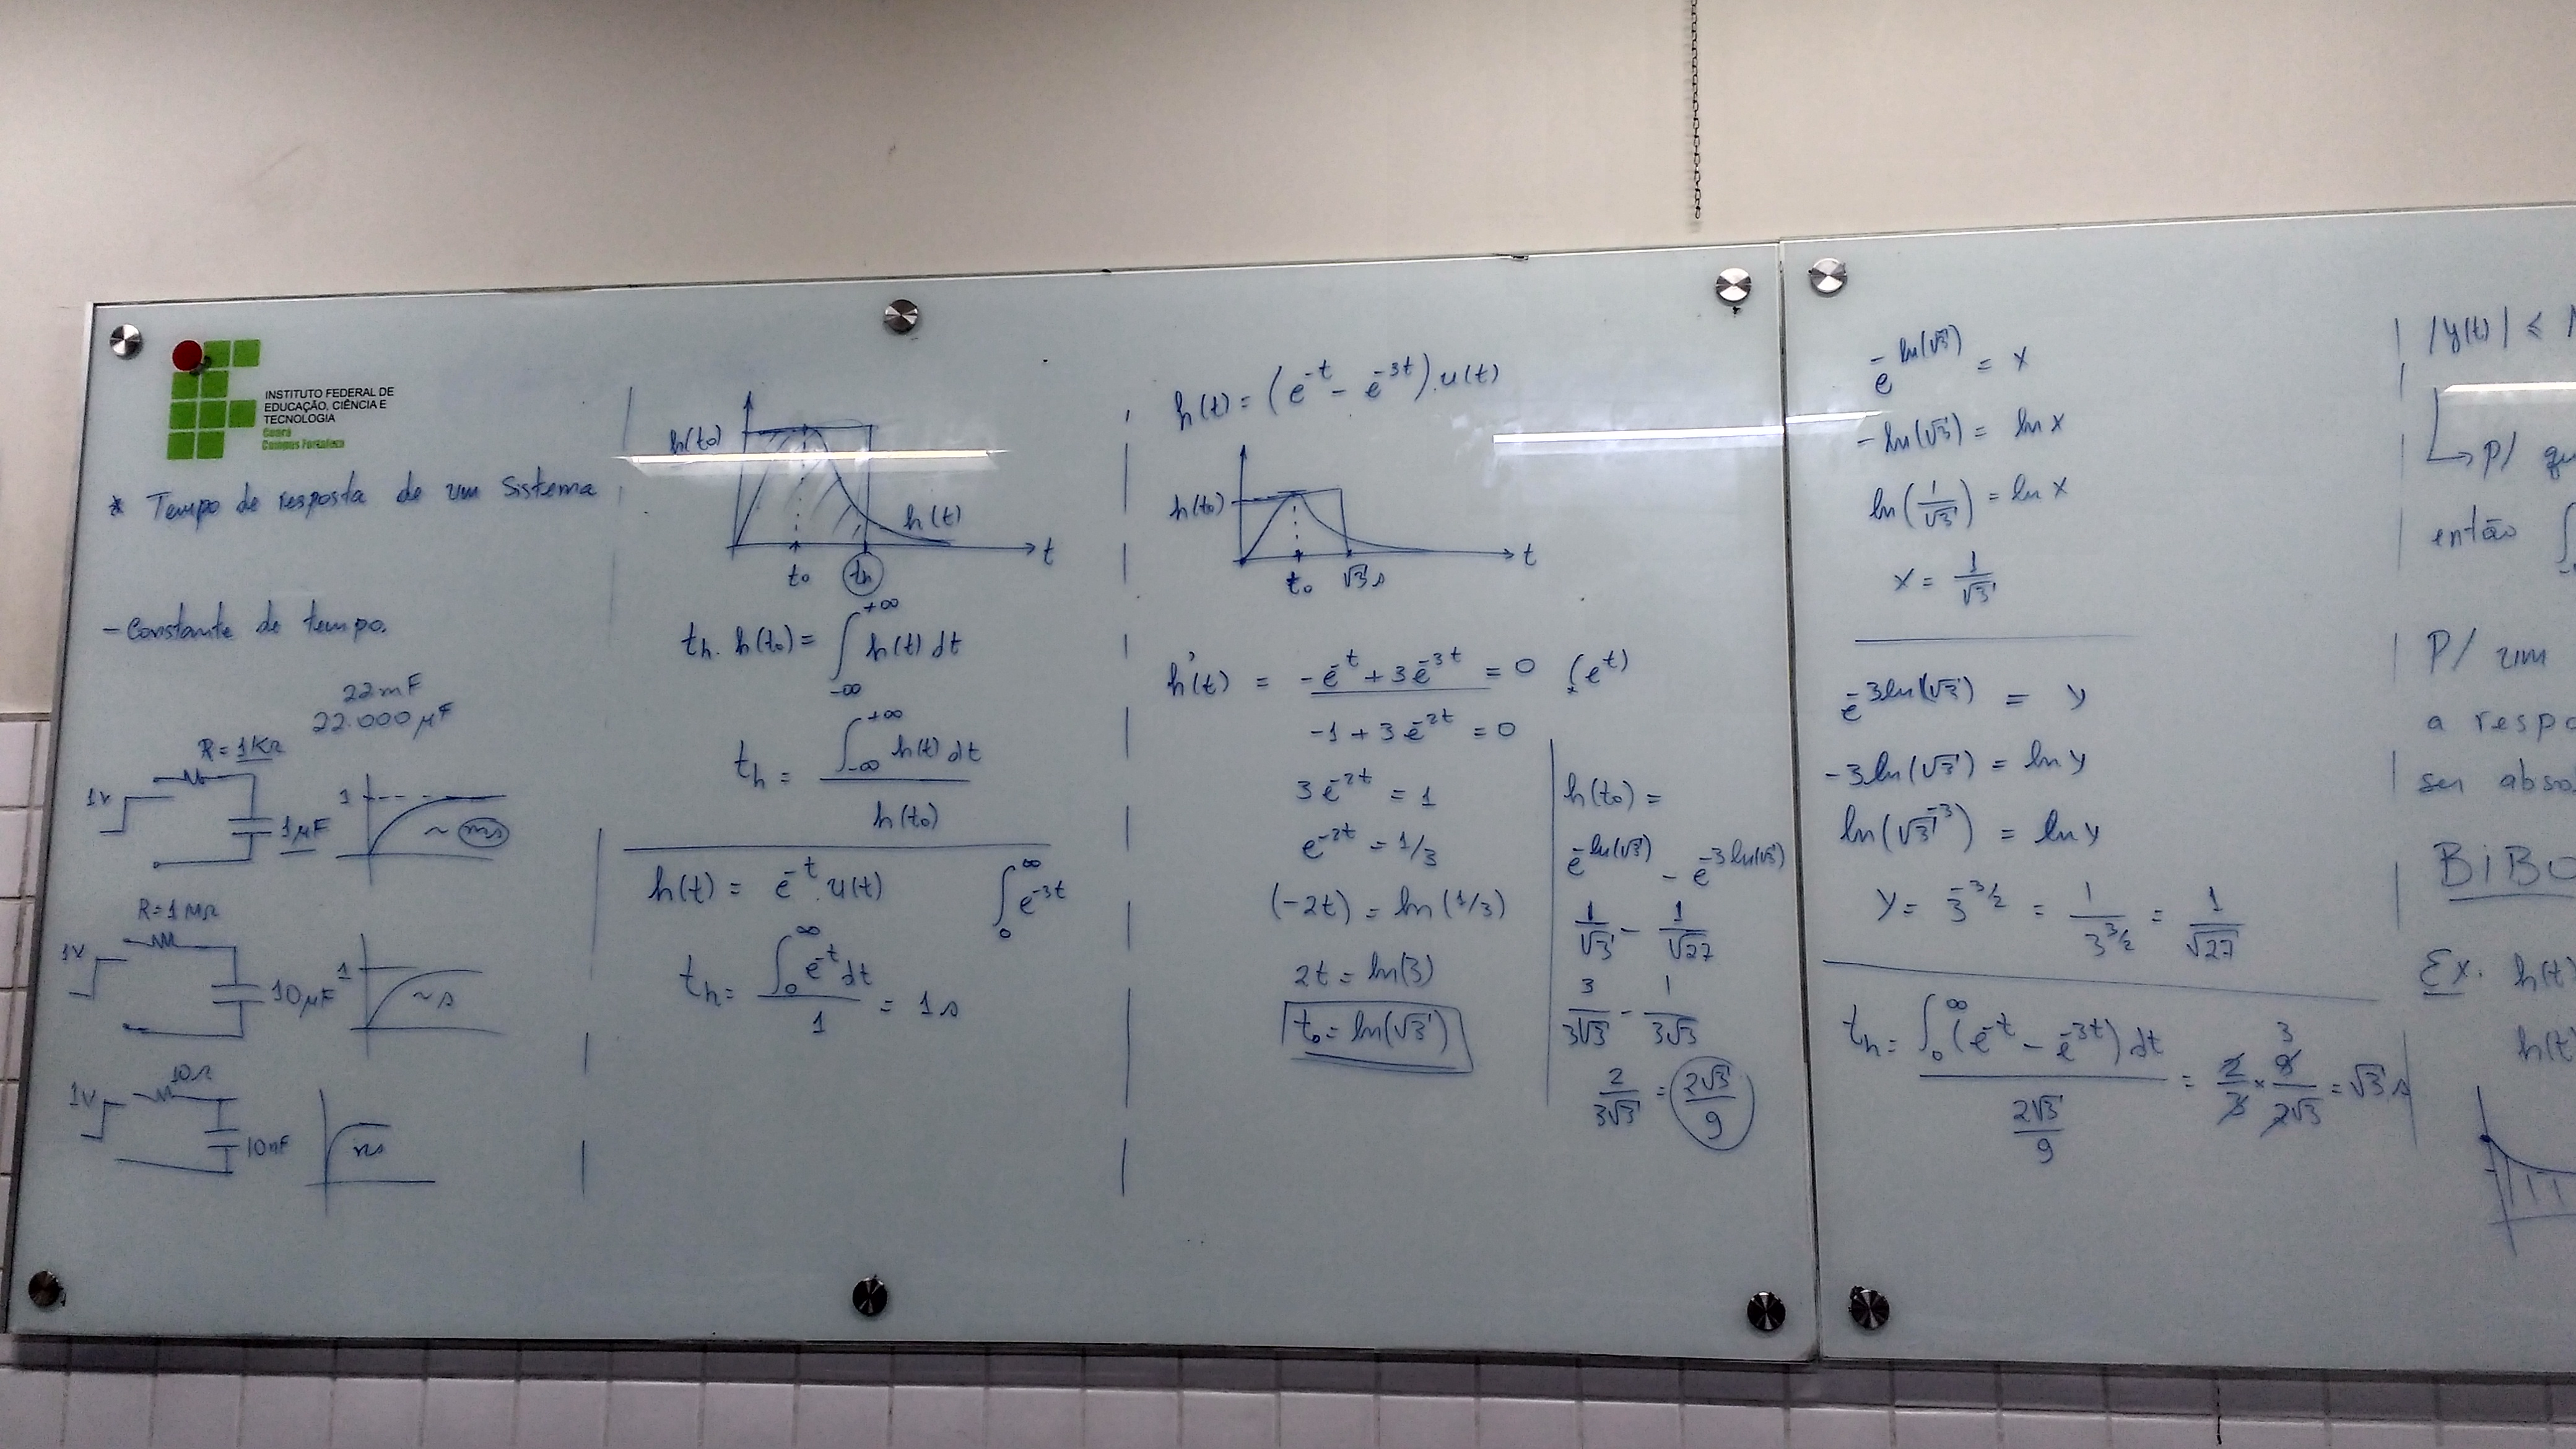 INSTITUTO FEDERAL DE
EDUCAÇÃO, CIÊNCIA E
TECNOLOGIA
Ceará
Campus Fortaleza
* Tempo de resposta de um Sistema
- Constante de tempo.
22mF
22.000 μF
R = 1KΩ
1V
1μF
1
~ ms
R=1MΩ
1V
10μF
1
~ s
10Ω
1V
10nF
ns
h(t₀)
h(t)
t
t₀
th
th. h(t₀) = ∫_{-∞}^{+∞} h(t) dt
th = ∫_{-∞}^{+∞} h(t) dt / h(t₀)
h(t) = e^{-t}.u(t)
∫_0^∞ e^{-3t}
th = ∫_0^∞ e^{-t} dt / 1 = 1 s
h(t) = (e^{-t} - e^{-3t}).u(t)
h(t₀)
t
t₀
√3 s
h'(t) = -e^{-t} + 3e^{-3t} = 0 (. e^t)
-1 + 3e^{-2t} = 0
3e^{-2t} = 1
e^{-2t} = 1/3
(-2t) = ln(1/3)
2t = ln(3)
t₀ = ln(√3)
h(t₀) =
e^{-ln(√3)} - e^{-3ln(√3)}
1/√3 - 1/√27
3/3√3 - 1/3√3
2/3√3 = 2√3/9
e^{-ln(√3)} = x
-ln(√3) = ln x
ln(1/√3) = ln x
x = 1/√3
e^{-3ln(√3)} = y
-3ln(√3) = ln y
ln(√3^{-3}) = ln y
y = 3^{-3/2} = 1/3^{3/2} = 1/√27
th = ∫_0^∞ (e^{-t} - e^{-3t}) dt / (2√3/9) = 2/3 × 9/2√3 = √3 s
3
|y(t)| ≤
P/
então ∫
P/ um
a
ser
BIBO
Ex. h(t)
h(t)